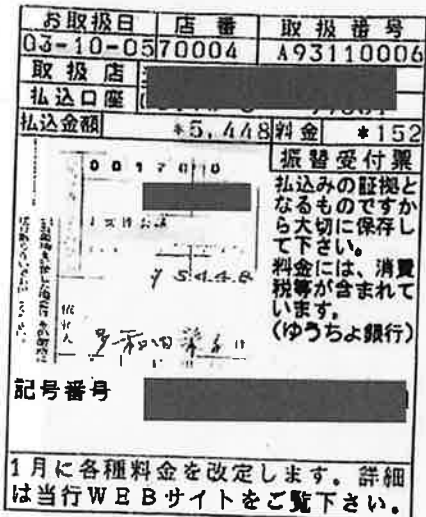 お取扱日 店番 取扱番号
03-10-05 70004 A93110006
取扱店
払込口座
払込金額 *5,448 料金 *152
振替受付票
払込みの証拠と
なるものですか
ら大切に保存し
て下さい。
料金には、消費
税等が含まれて
います。
(ゆうちょ銀行)
00170
¥5448
記号番号
1月に各種料金を改定します。詳細
は当行WEBサイトをご覧下さい。